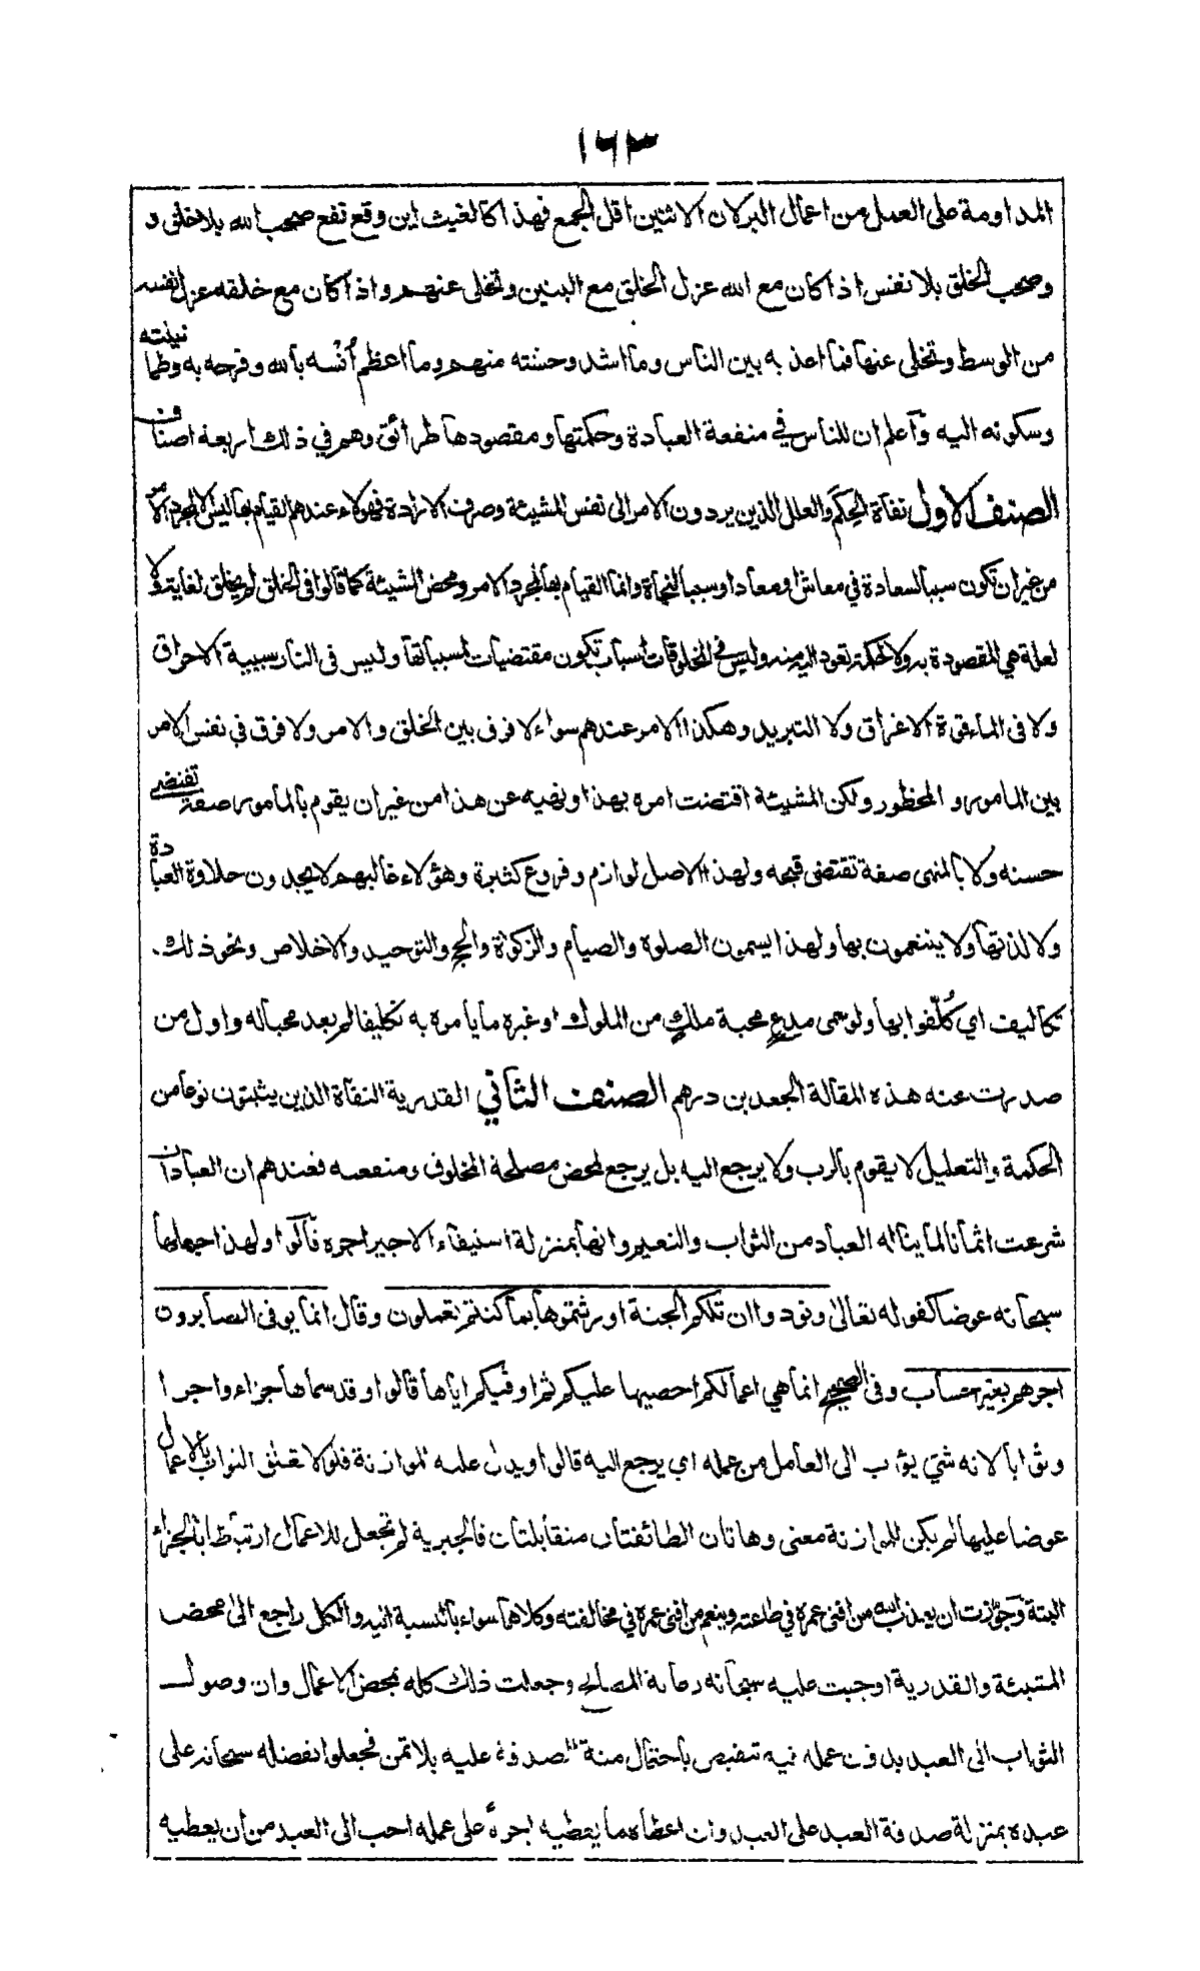 ١٦٣
المداومة على العمل من اعمال البر كان الاثنين اقل الجمع فهذا كالغيث اين وقع نفع صحب الله بلا خلق و
وصحب الخلق بلا نفس اذا كان مع الله عزل الخلق مع البنين وتخلى عنهم واذا كان مع خلقه عزل نفسه
من الوسط وتخلى عنها فما اعذ به بين الناس وما اشد وحشته منهم وما اعظم أُنسه بالله وفرحه به وطما نينته
وسكونه اليه وآعلم ان للناس في منفعة العبادة وحكمتها ومقصودها طرائق وهم في ذلك اربعة اصناف
الصنف الاول نفاة الحِكَم والعلل الذين يردون الامر الى نفس المشيئة وصرف الارادة فهؤلاء عندهم القيام بها ليس الا لمجرد الامر
من غير ان تكون سببا لسعادة في معاش او معاد او سببا لنجاة وانما القيام بها لمجرد الامر ومحض المشيئة كما قالوا في الخلق لم يخلق لغاية ولا
لعلة هي المقصودة به ولا لحكمة تعود اليه منه وليس في المخلوقات اسباب تكون مقتضيات لمسبباتها وليس في النار سببية الاحراق
ولا في الماء قوة الاغراق ولا التبريد وهكذا الامر عندهم سواء لا فرق بين الخلق والامر ولا فرق في نفس الامر
بين المامور و المحظور ولكن المشيئة اقتضت امره بهذا ونهيه عن هذا من غير ان يقوم بالمامور صفة تقتضي
حسنه ولا بالمنهى صفة تقتضى قبحه ولهذا الاصل لوازم وفروع كثيرة وهؤلاء غالبهم لا يجدون حلاوة العبادة
ولا لذتها ولا يتنعمون بها ولهذا يسمون الصلوة والصيام والزكوة والحج والتوحيد والاخلاص ونحو ذلك
تكاليف اي كُلّفوا بها ولو سمى مدع محبة ملكٍ من الملوك او غيره ما يامره به تكليفا لم يعد محبا له واول من
صدرت عنه هذه المقالة الجعد بن درهم الصنف الثاني القدرية النفاة الذين يثبتون نوعا من
الحكمة والتعليل لا يقوم بالرب ولا يرجع اليه بل يرجع لمحض مصلحة المخلوق ومنفعته فعندهم ان العبادات
شرعت اثمانا لما يناله العباد من الثواب والنعيم وانها بمنزلة استيفاء الاجير اجره قالوا ولهذا جعلها
سبحانه عوضا كقوله تعالى ونودوا ان تلكم الجنة اورثتموها بما كنتم تعملون وقال انما يوفى الصابرون
اجرهم بغير حساب وفى الصحيح انما هي اعمالكم احصيها عليكم ثم اوفيكم اياها قالوا وقد سماها جزاء واجرا
وثوابا لانه شئ يؤب الى العامل من عمله اي يرجع اليه قالوا ويدل عليه الموازنة فلولا تعلق الثواب بالاعمال
عوضا عليها لم يكن للموازنة معنى وهاتان الطائفتان متقابلتان فالجبرية لم تجعل للاعمال ارتباطا بالجزاء
البتة وجوّزت ان يعذب الله من افنى عمره في طاعته وينعم من افنى عمره في مخالفته وكلاهما سواء بالنسبة اليه والكل راجع الى محض
المشيئة والقدرية اوجبت عليه سبحانه رعاية المصالح وجعلت ذلك كله بمحض الاعمال وان وصول
الثواب الى العبد بدون عمله فيه تنغيص باحتمال منة الصدقة عليه بلا ثمن فجعلوا تفضله سبحانه على
عبده بمنزلة صدقة العبد على العبد وان اعطاه ما يعطيه اجرةً على عمله احب الى العبد من ان يعطيه